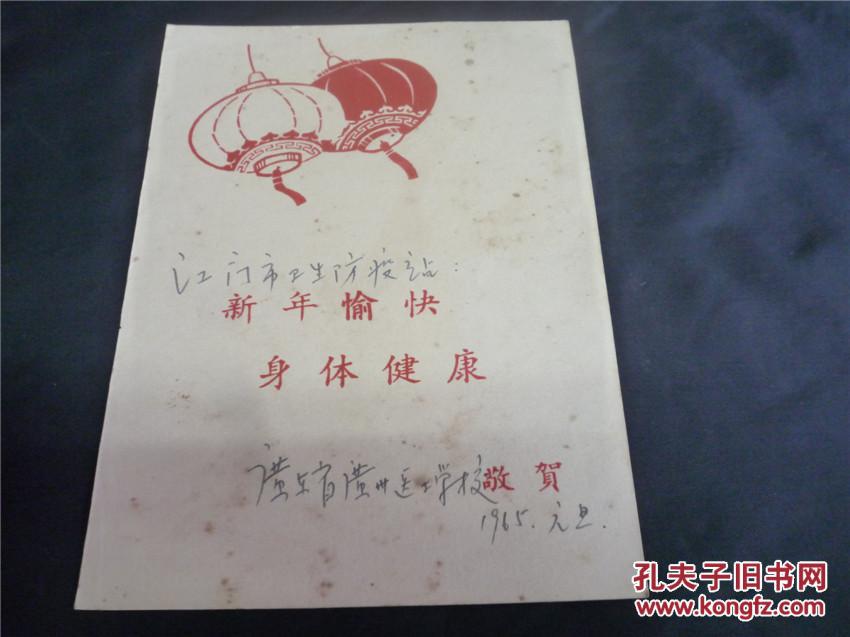 江门市卫生防疫站：
新年愉快
身体健康
廣东省廣州医士学校敬賀
1965.元旦.
孔夫子旧书网
www.kongfz.com